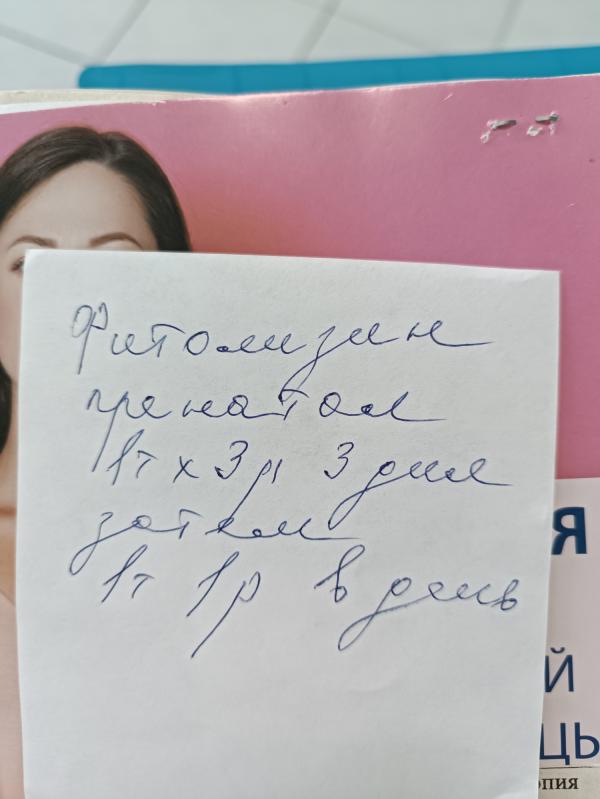 Фитолизин
пренатал
1т х 3р 3 дня
затем
1т 1р в день
Я
Й
ЩЬ
опия